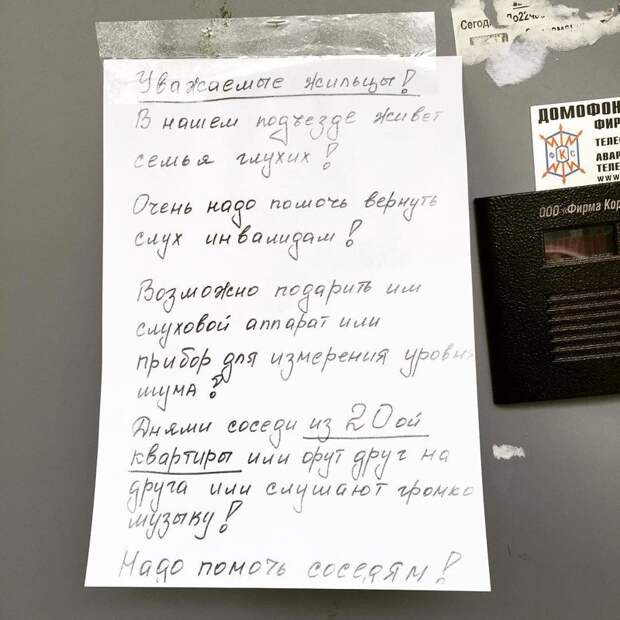 Уважаемые жильцы!
В нашем подъезде живет
семья глухих!
Очень надо помочь вернуть
слух инвалидам!
Возможно подарить им
слуховой аппарат или
прибор для измерения уровня
шума!
Днями соседи из 20ой
квартиры или орут друг на
друга или слушают громко
музыку!
Надо помочь соседям!
Сегод
ДОМОФОН
ФИР
ТЕЛЕ
АВАР
ТЕЛЕ
www.
ФКС
ООО «Фирма Кор